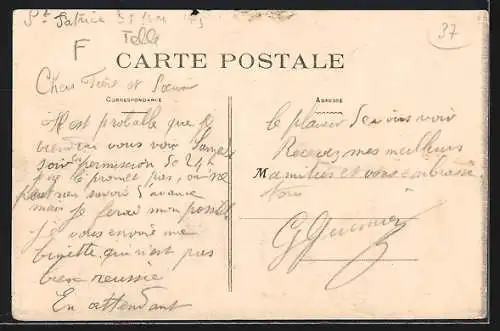 St Patrice 37
37
F Telle
CARTE POSTALE
CORRESPONDANCE
ADRESSE
Cher Frère et Soeur
Il est probable que je
viendrai vous voir Samedi
soir en permission de 24h
je ne le promet pas, on ne
peut rien savoir d'avance
mais je ferai mon possible
je vous envoie ma
binette qui n'est pas
bien reussie
En attendant
le plaisir de vous voir
Recevez mes meilleurs
M amitiés et vous embrasse
tous